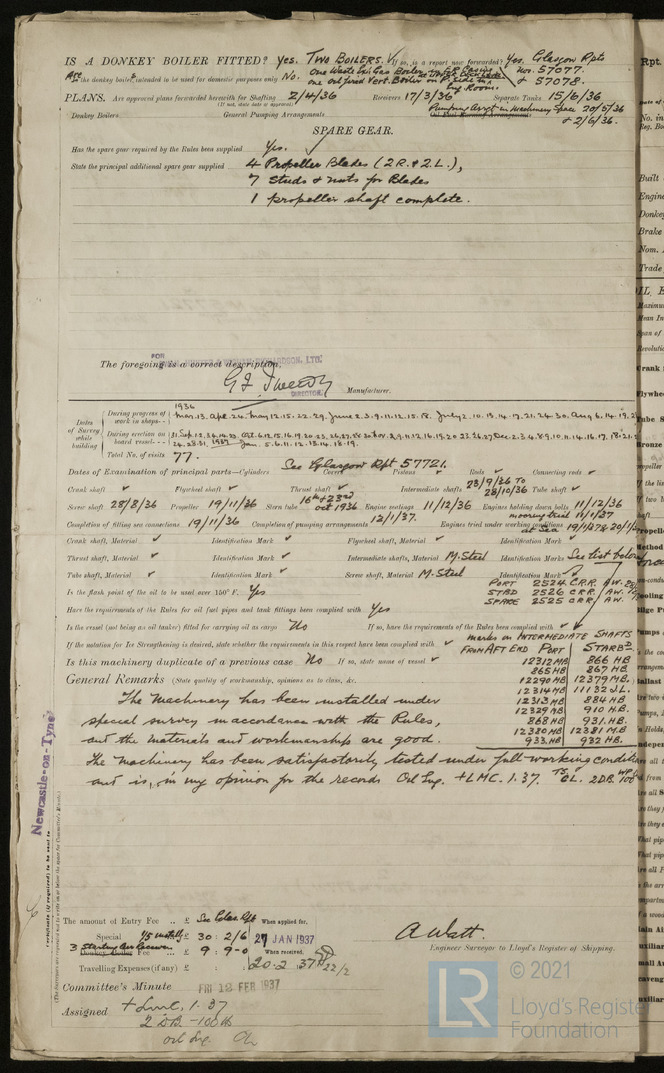 IS A DONKEY BOILER FITTED? Yes. TWO BOILERS. If so, is a report now forwarded? Yes. Glasgow Rpts
Nos. 57077.
& 57078.
Are the donkey boilers intended to be used for domestic purposes only No. One Waste Oil Gas Boiler
one oil fired Vert. Boiler on P. side in Eng Room.
PLANS. Are approved plans forwarded herewith for Shafting 2/4/36 Receivers 17/3/36 Separate Tanks 15/6/36
(If not, state date of approval)
Pumping Arrgt in Machinery Space 20/5/36
Donkey Boilers General Pumping Arrangements Oil Fuel Burning Arrangements
& 2/6/36.
SPARE GEAR.
Has the spare gear required by the Rules been supplied Yes.
State the principal additional spare gear supplied 4 Propeller Blades (2 R. & 2 L.),
7 Studs & nuts for Blades
1 propeller shaft complete.
FOR
RICHARDSON, LTD.
The foregoing is a correct description,
DIRECTOR. Manufacturer.
Dates of Survey while building
During progress of work in shops - -
1936
Mar. 13. Apl. 24. May 12. 15. 22. 29. June 2. 3. 9. 11. 12. 15. 18. July 2. 10. 14. 17. 21. 24. 30. Aug 6. 14. 19.
During erection on board vessel - - -
Total No. of visits 77.
Dates of Examination of principal parts—Cylinders See Glasgow Rpt 57721. Covers Pistons Rods Connecting rods
Crank shaft Flywheel shaft Thrust shaft Intermediate shafts 23/9/36 To 28/10/36 Tube shaft
Screw shaft 28/8/36 Propeller 19/11/36 Stern tube 16th & 23rd Oct 1936 Engine seatings 11/12/36 Engines holding down bolts 11/12/36
Completion of fitting sea connections 19/11/36 Completion of pumping arrangements 12/1/37. Engines tried under working conditions
at Sea
Crank shaft, Material Identification Mark Flywheel shaft, Material Identification Mark
Thrust shaft, Material Identification Mark Intermediate shafts, Material M. Steel Identification Marks See list below
Tube shaft, Material Identification Mark Screw shaft, Material M. Steel Identification Mark
PORT 2524 C.R.R. A.W.
STBD 2526 C.R.R. A.W.
SPARE 2525 C.R.R. A.W.
Is the flash point of the oil to be used over 150° F. Yes
Have the requirements of the Rules for oil fuel pipes and tank fittings been complied with Yes
Is the vessel (not being an oil tanker) fitted for carrying oil as cargo No If so, have the requirements of the Rules been complied with
If the notation for Ice Strengthening is desired, state whether the requirements in this respect have been complied with
Is this machinery duplicate of a previous case No If so, state name of vessel
marks on INTERMEDIATE SHAFTS
FROM AFT END PORT STARBD
12312 MB 866 HB
865 HB 867 HB
12290 MB 12379 MB.
12314 MB 11132 J.L.
12313 MB 884 HB
12329 MB 910 HB.
868 HB 931. HB.
12380 MB 12381 M.B
933. HB 932 HB.
General Remarks (State quality of workmanship, opinions as to class, &c.
The Machinery has been installed under
special survey in accordance with the Rules,
and the materials and workmanship are good.
The Machinery has been satisfactorily tested under full working conditions
and is, in my opinion for the records Oil Eng. + LMC. 1.37. TS CL. 2 DB. WP 100
Newcastle-on-Tyne
Certificate (if required) to be sent to
The amount of Entry Fee .. £ See Glas. Rpt When applied for,
Special £ 30 : 2/6 27 JAN 1937
3 Starting Air Receivers
Donkey Boiler Fee .. £ 9 : 9-0 When received,
Travelling Expenses (if any) £ 20.2.37 22/2
A Watt.
Engineer Surveyor to Lloyd's Register of Shipping.
Committee's Minute FRI 12 FEB 1937
Assigned + LMC, 1.37
2 DB - 100 lb
oil Eng. CL
LR
© 2021
Lloyd's Register
Foundation